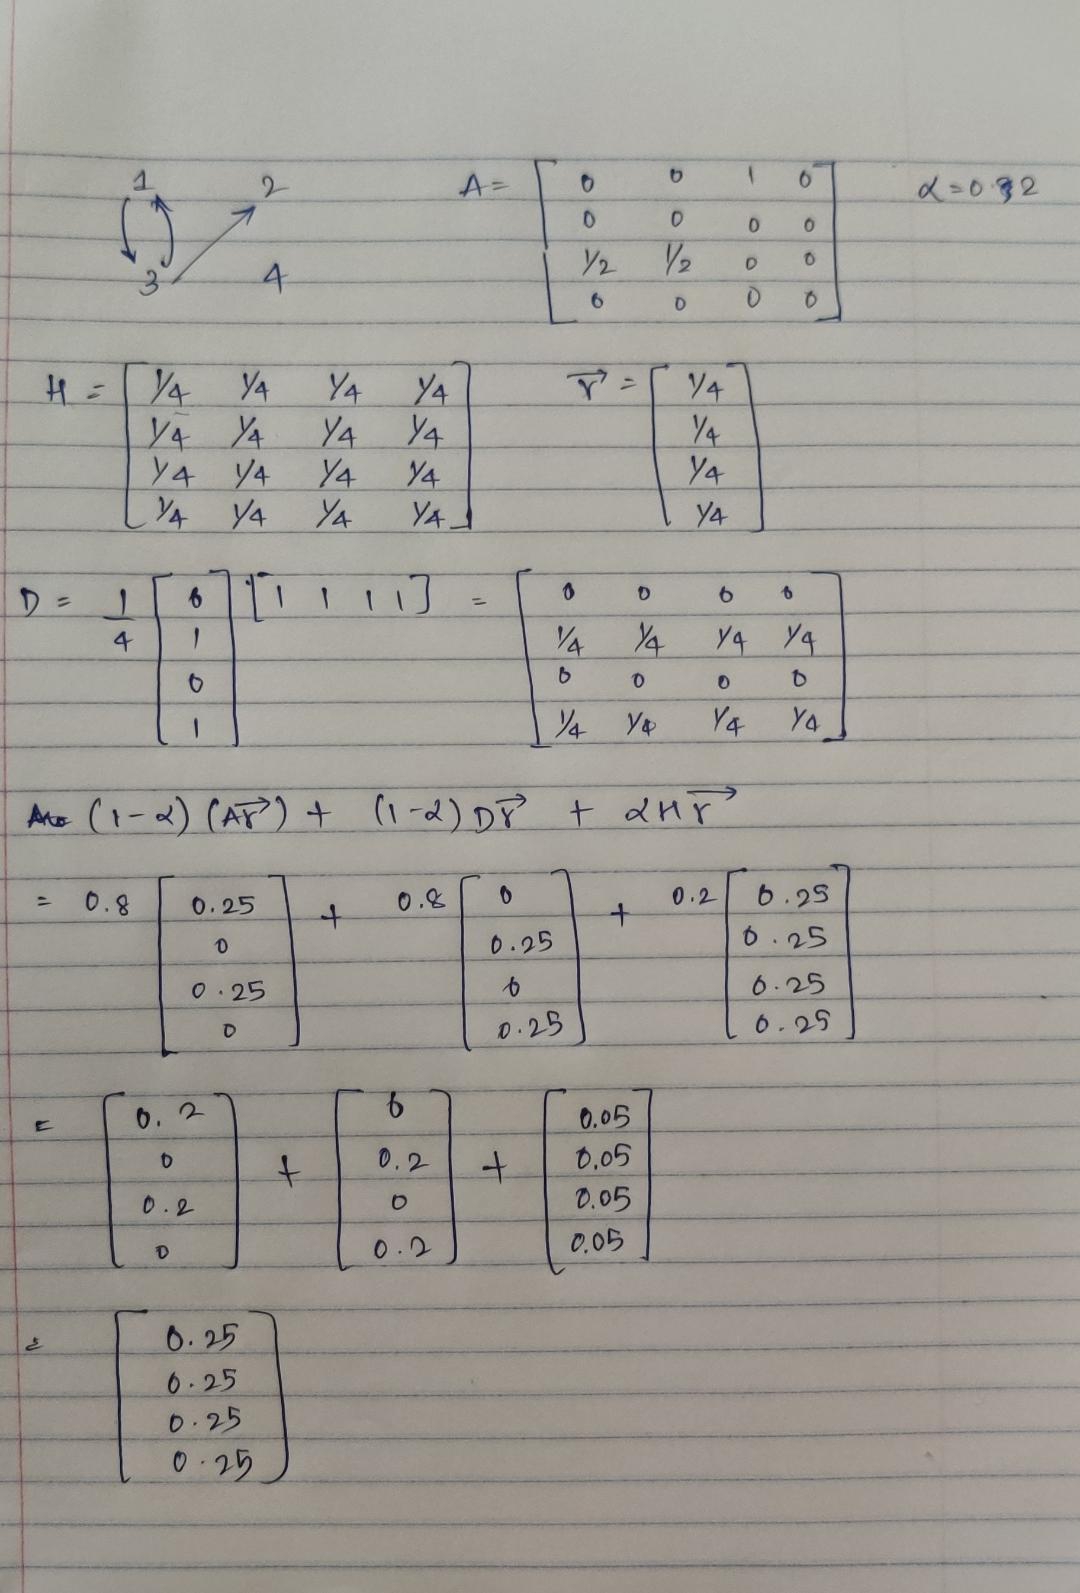 1 2 A = [ 0 0 1 0 α = 0.2
0 0 0 0
3 4 1/2 1/2 0 0
0 0 0 0 ]
H = [ 1/4 1/4 1/4 1/4 r⃗ = [ 1/4
1/4 1/4 1/4 1/4 1/4
1/4 1/4 1/4 1/4 1/4
1/4 1/4 1/4 1/4 ] 1/4 ]
D = 1/4 [ 0 [ 1 1 1 1 ] = [ 0 0 0 0
1 1/4 1/4 1/4 1/4
0 0 0 0 0
1 ] 1/4 1/4 1/4 1/4 ]
(1-α) (Ar⃗) + (1-α) Dr⃗ + αHr⃗
= 0.8 [ 0.25 + 0.8 [ 0 + 0.2 [ 0.25
0 0.25 0.25
0.25 0 0.25
0 ] 0.25 ] 0.25 ]
= [ 0.2 [ 0 [ 0.05
0 + 0.2 + 0.05
0.2 0 0.05
0 ] 0.2 ] 0.05 ]
= [ 0.25
0.25
0.25
0.25 ]